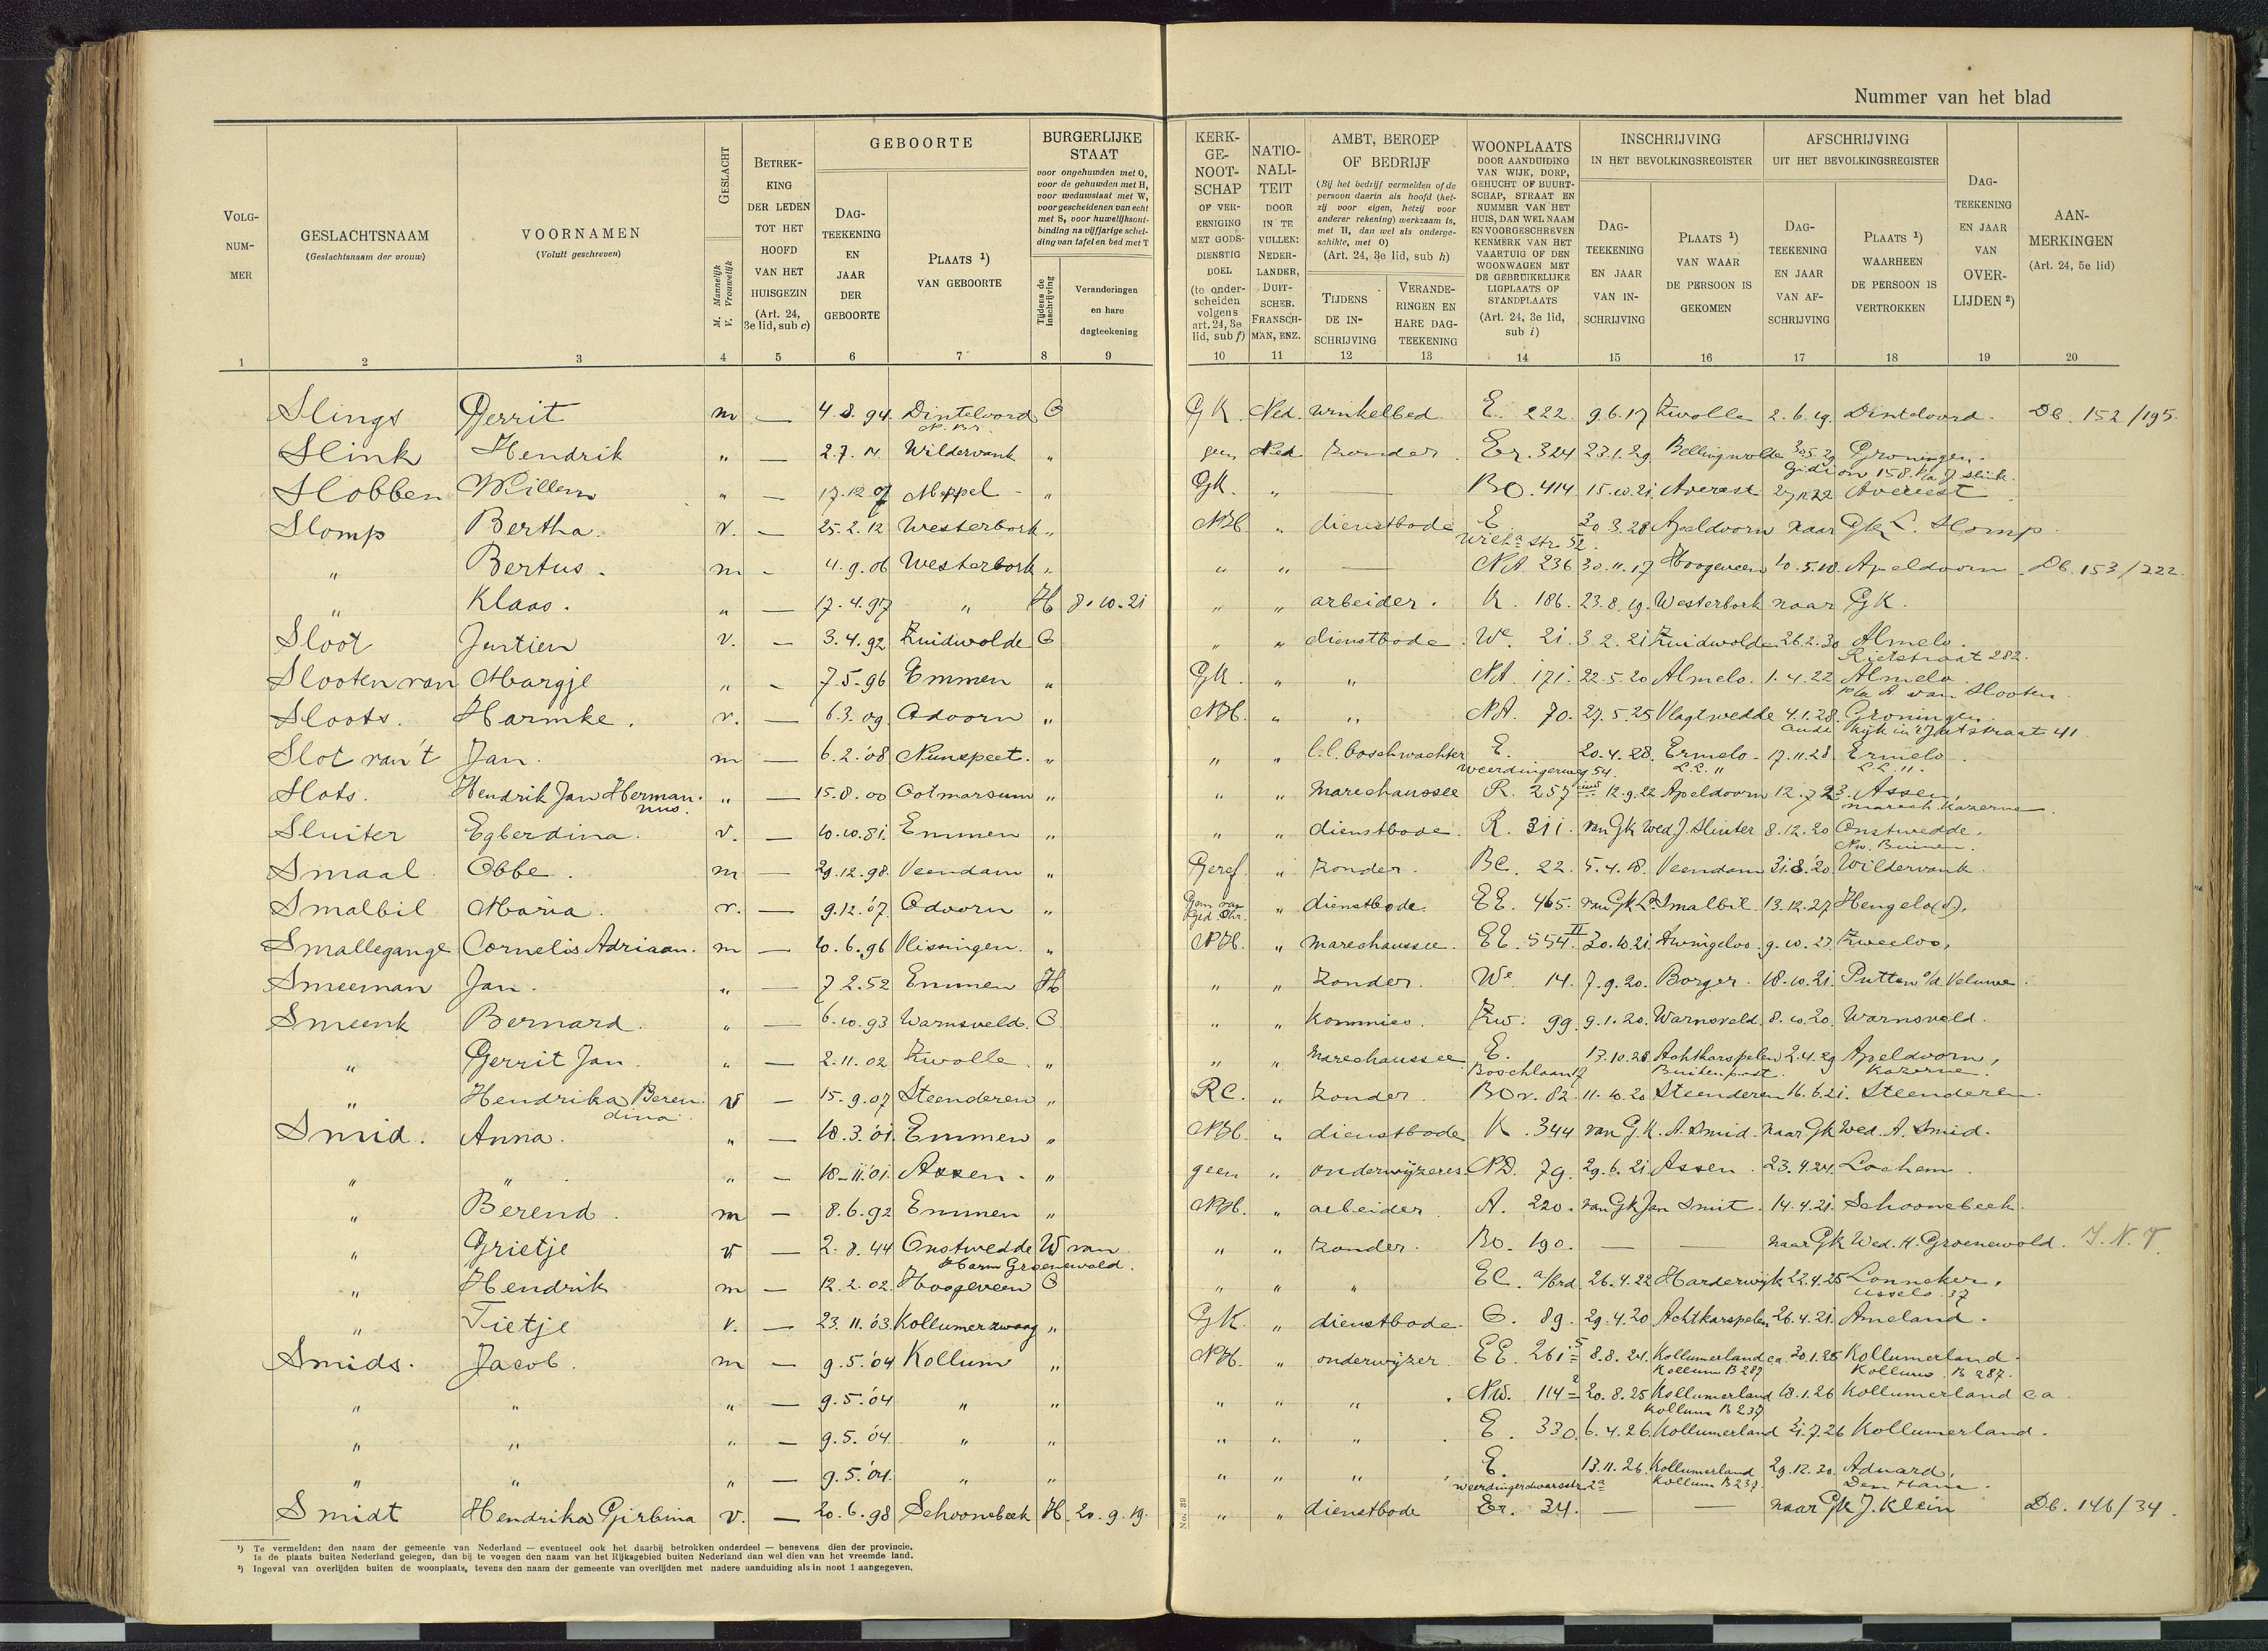 Nummer van het blad
VOLG-NUM-MER
GESLACHTSNAAM (Geslachtsnaam der vrouw)
VOORNAMEN (Voluit geschreven)
GESLACHT M. Mannelijk V. Vrouwelijk
BETREK-KING DER LEDEN TOT HET HOOFD VAN HET HUISGEZIN (Art. 24, 3e lid, sub c)
GEBOORTE
DAG-TEEKENING EN JAAR DER GEBOORTE
PLAATS ¹) VAN GEBOORTE
BURGERLIJKE STAAT
voor ongehuwden met O, voor de gehuwden met H, voor weduwstaat met W, voor gescheidenen van echt met S, voor huwelijksont-binding na vijfjarige schei-ding van tafel en bed met T
Tijdens de inschrijving
Veranderingen en hare dagteekening
KERK-GE-NOOT-SCHAP OF VER-EENIGING MET GODS-DIENSTIG DOEL (te onder-scheiden volgens art. 24, 3e lid, sub f)
NATIO-NALI-TEIT DOOR IN TE VULLEN: NEDER-LANDER, DUIT-SCHER, FRANSCH-MAN, ENZ.
AMBT, BEROEP OF BEDRIJF
(Bij het bedrijf vermelden of de persoon daarin als hoofd (het-zij voor eigen, hetzij voor anderer rekening) werkzaam is, met H, dan wel als onderge-schikte, met O) (Art. 24, 3e lid, sub h)
TIJDENS DE IN-SCHRIJVING
VERANDE-RINGEN EN HARE DAG-TEEKENING
WOONPLAATS DOOR AANDUIDING VAN WIJK, DORP, GEHUCHT OF BUURT-SCHAP, STRAAT EN NUMMER VAN HET HUIS, DAN WEL NAAM EN VOORGESCHREVEN KENMERK VAN HET VAARTUIG OF DEN WOONWAGEN MET DE GEBRUIKELIJKE LIGPLAATS OF STANDPLAATS (Art. 24, 3e lid, sub i)
INSCHRIJVING IN HET BEVOLKINGSREGISTER
DAG-TEEKENING EN JAAR VAN IN-SCHRIJVING
PLAATS ¹) VAN WAAR DE PERSOON IS GEKOMEN
AFSCHRIJVING UIT HET BEVOLKINGSREGISTER
DAG-TEEKENING EN JAAR VAN AF-SCHRIJVING
PLAATS ¹) WAARHEEN DE PERSOON IS VERTROKKEN
DAG-TEEKENING EN JAAR VAN OVER-LIJDEN ²)
AAN-MERKINGEN (Art. 24, 5e lid)
1 2 3 4 5 6 7 8 9 10 11 12 13 14 15 16 17 18 19 20
Slings Gerrit m — 4.8.94. Dinteloord N.Br. O GK. Ned. winkelbed. E. 222. 9.6.17 Zwolle 2.6.19. Dinteloord. Db. 152/195.
Slink Hendrik " — 2.7. Wildervank " geen Ned. zonder. Er. 324 23.1.29. Bellingwolde 30.5.29 Groningen.
Slobben Willem " — 17.12.07 Meppel " GK. " — BO. 414 15.10.21. Avereest 27.11.22 Avereest
Slomp Bertha. v. — 25.2.12 Westerbork " NH. " dienstbode E. Wilha str. 52. 30.3.28 Apeldoorn naar Gk L. Slomp.
" Bertus. m — 4.9.06 Westerbork " " " — NA. 236 30.11.17 Hoogeveen 10.5.18. Apeldoorn Db. 153/222.
" Klaas. " — 17.4.97 " H 8.10.21 " " arbeider. K. 186. 23.8.19. Westerbork naar GK.
Sloot Jantien v. — 3.4.92 Zuidwolde O " " dienstbode. We. 21. 3.2.21 Zuidwolde 26.2.30 Almelo. Rietstraat 282.
Slooten van Margje " — 7.5.96 Emmen " GK. " " NA. 171. 22.5.20 Almelo. 1.4.22 Almelo. p/a A. van Slooten.
Sloots. Harmke. v. — 6.3.09 Odoorn " NH. " " NA. 70. 27.5.25 Vlagtwedde 4.1.28. Groningen. Oude Kijk in 't Jatstraat 41.
Slot van't Jan. m — 6.2.'08 Nunspeet. " " " boschwachter E. Weerdingerweg 54. 20.4.28. Ermelo. 17.11.28. Ermelo
Slots. Hendrik Jan Hermannus. " — 15.8.00 Ootmarsum " " " Marechaussee R. 257 12.9.22 Apeldoorn 12.7.23. Assen, marech. kazerne
Sluiter Egberdina. v. — 10.10.81. Emmen " " " dienstbode. R. 311. van Gk Wed J. Sluiter 8.12.20 Onstwedde. Nw. Buinen.
Smaal Obbe. m — 29.12.98. Veendam " Geref. " zonder. BC. 22. 5.4.18. Veendam 31.8.'20. Wildervank.
Smalbil Maria. v. — 9.12.'07 Odoorn " " dienstbode. EE. 465. van Gk L. Smalbil. 13.12.27 Hengelo(O).
Smallegange Cornelis Adriaan. m — 10.6.96 Vlissingen. " NH. " marechaussee. EE. 554 II 20.10.21. Dwingeloo. 9.10.27. Zweeloo.
Smeeman Jan. " — 7.2.52 Emmen H " " zonder. We. 14. 7.9.20. Borger. 18.10.21. Putten o/d Veluwe.
Smeenk Bernard. " — 6.10.93 Warnsveld. O " " Kommies. Zw. 99. 9.1.20. Warnsveld. 8.10.20. Warnsveld.
" Gerrit Jan. " — 2.11.02 Zwolle. " " " Marechaussee E. Boschlaan 17 13.10.28 Achtkarspelen Buitenpost. 2.4.29 Apeldoorn, Kazerne.
" Hendrika Berendina. v — 15.9.07 Steenderen " RC. " zonder. BOv. 82. 11.10.20 Steenderen 16.6.21. Steenderen.
Smid. Anna. " — 18.3.'01. Emmen " NH. " dienstbode K. 344 van G.K. A. Smid. naar Gk Wed. A. Smid.
" " " — 18.11.01. Assen. " geen " onderwijzeres. ND. 79. 29.6.21. Assen. 23.4.24. Lochem.
" Berend. m — 8.6.92 Emmen " NH. " arbeider. A. 220. van Gk Jan Smit. 14.4.21. Schoonebeek.
" Grietje v — 2.8.44 Onstwedde W van Harm Groenewold. " " zonder. Bo. 190. — — naar Gk Wed. H. Groenewold. J.N.V.
" Hendrik m — 12.2.02. Hoogeveen O " " " EC. a/brd. 26.4.22 Harderwijk 22.4.25 Lonneker, Usselo 37
" Tietje v. — 23.11.'03. Kollumerzwaag " GK. " dienstbode. O. 89. 29.4.20 Achtkarspelen 26.4.21. Ameland.
Smids. Jacob. m — 9.5.'04 Kollum " NH. " onderwijzer EE. 261 5 8.8.24. Kollumerland ca. Kollum B 287 30.1.25 Kollumerland. Kollum B 287.
" " " — 9.5.'04 " " " " " Nw. 114 2 20.8.25 Kollumerland Kollum B 237 18.1.26 Kollumerland ca.
" " " — 9.5.'04. " " " " " E. 330. 6.4.26. Kollumerland 31.7.26 Kollumerland.
" " " — 9.5.'04. " " " " " E. Weerdingerdwarsstr. 2a 13.11.26. Kollumerland Kollum B 237. 29.12.30. Aduard, Den Ham.
Smidt Hendrika Girbina v. — 20.6.98 Schoonebeek H. 20.9.19. " " dienstbode Er. 34. — — naar Gk J. Klein Db. 146/34.
No. 39
¹) Te vermelden: den naam der gemeente van Nederland — eventueel ook het daarbij betrokken onderdeel — benevens dien der provincie.
Is de plaats buiten Nederland gelegen, dan bij te voegen den naam van het Rijksgebied buiten Nederland dan wel dien van het vreemde land.
²) Ingeval van overlijden buiten de woonplaats, tevens den naam der gemeente van overlijden met nadere aanduiding als in noot 1 aangegeven.